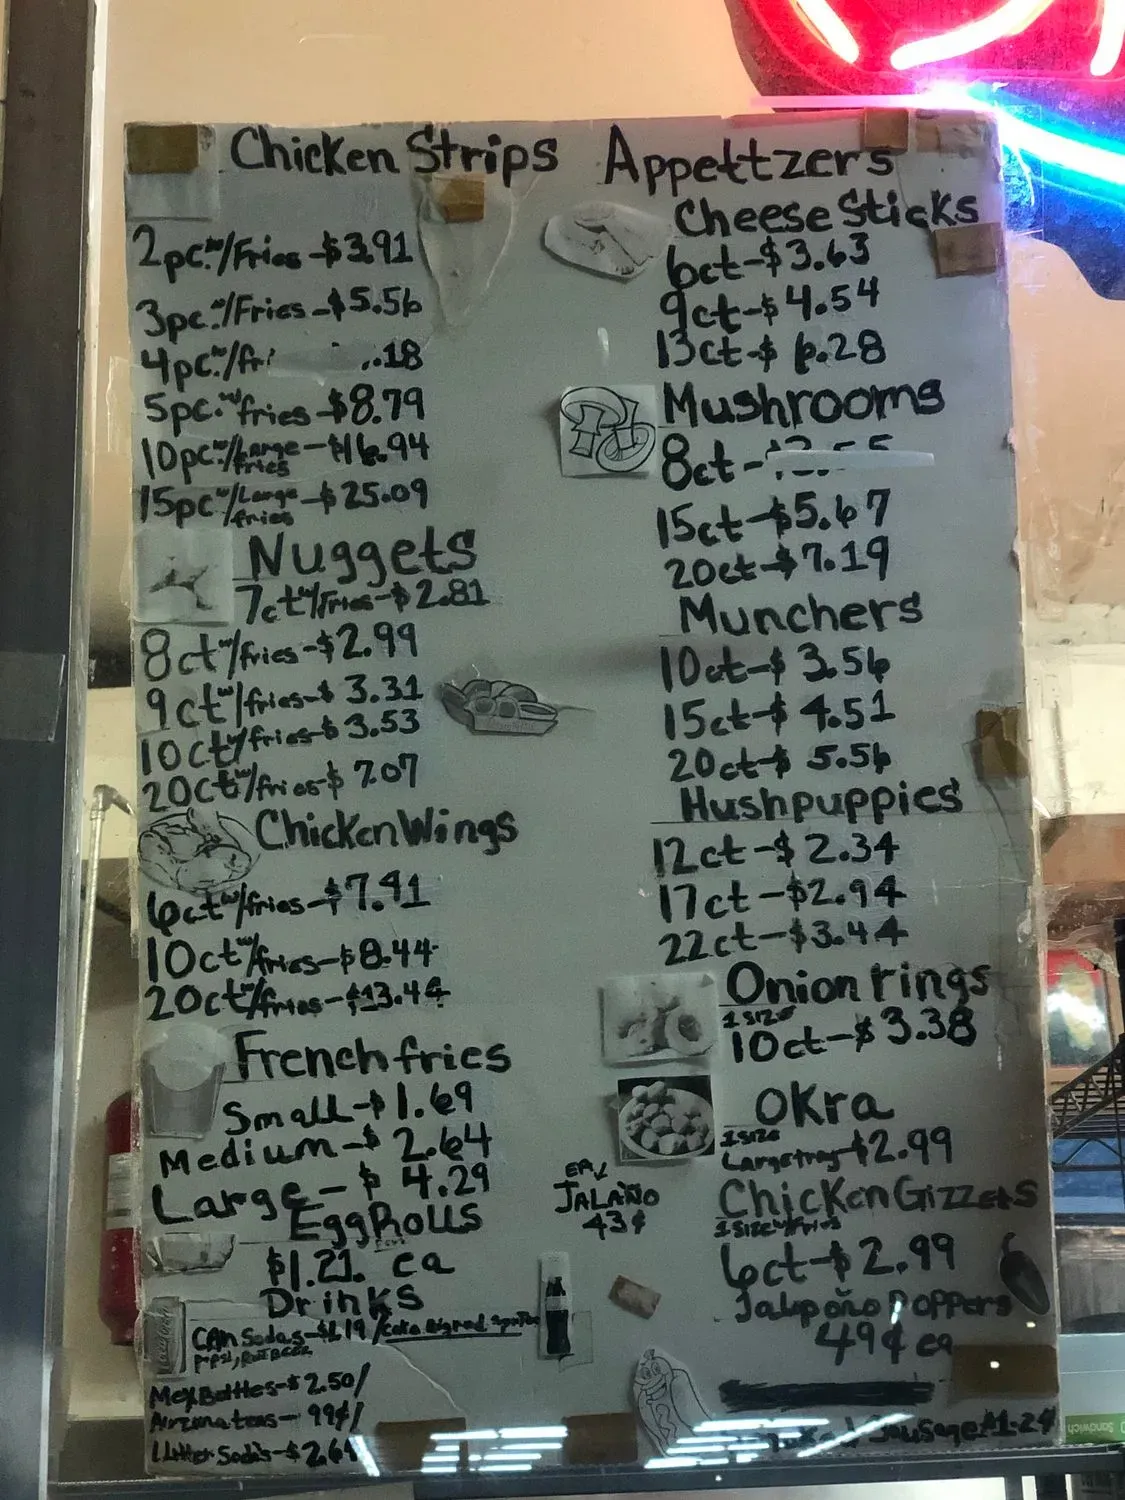 Chicken Strips
2pc. w/Fries - $3.91
3pc. w/Fries - $5.56
4pc. w/fri .18
5pc. w/fries - $8.79
10pc. w/Large fries - $16.94
15pc w/Large fries - $25.09
Nuggets
7ct w/Fries - $2.81
8ct w/fries - $2.99
9ct w/fries - $3.31
10ct w/fries - $3.53
20ct w/fries - $7.07
Chicken Wings
6ct w/fries - $7.91
10ct w/fries - $8.44
20ct w/fries - $13.44
French fries
Small - $1.69
Medium - $2.64
Large - $4.29
EggRolls
$1.21. ea
Drinks
CAN Sodas - $1.19 / Coke Big red Sprite
Pepsi, Root BEER
Mex Bottles - $2.50/
Arizona teas - 99¢/
1 Litter Sodas - $2.69
Appettzers
Cheese Sticks
6ct - $3.63
9ct - $4.54
13ct - $6.28
Mushrooms
8ct -
15ct - $5.67
20ct - $7.19
Munchers
10ct - $3.56
15ct - $4.51
20ct - $5.56
Hushpuppies
12ct - $2.34
17ct - $2.94
22ct - $3.44
Onion rings
1 SIZE
10ct - $3.38
OKra
1 SIZE
Large tray $2.99
EA
JALAÑO
43¢
Chicken Gizzets
1 SIZE w/fries
6ct - $2.99
Jalapoño Poppers
49¢ ea
Sausage $1.24
Sandwich